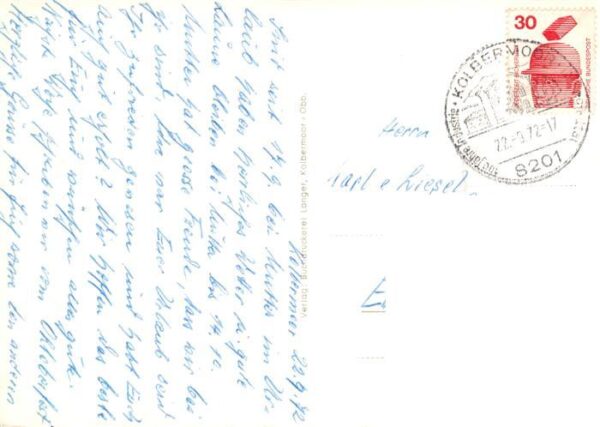 Kolbermoor 22.9.72
Sind seit 14.9. bei Mutter im Ur-
laub haben herrliches Wetter u. gute
Laune bleiben bei Mutter bis 14.10.
Mutter hat grosse Freude, dass wir bei
ihr sind. Nun war Euer Urlaub und
Ihr zufrieden gewesen und habt Euch
auch gut erholt? Wir hoffen das beste
für Euch und wünschen alles gute.
Nächste Woche fahren wir zum Oktoberfest
Herzliche Grüsse für
Verlag: Buchdruckerei Langer, Kolbermoor - Obb.
30
DEUTSCHE BUNDESPOST
KOLBERMOOR
22.-9.72-17
8201
100 Jahre
Herrn
Karl u. Liesel